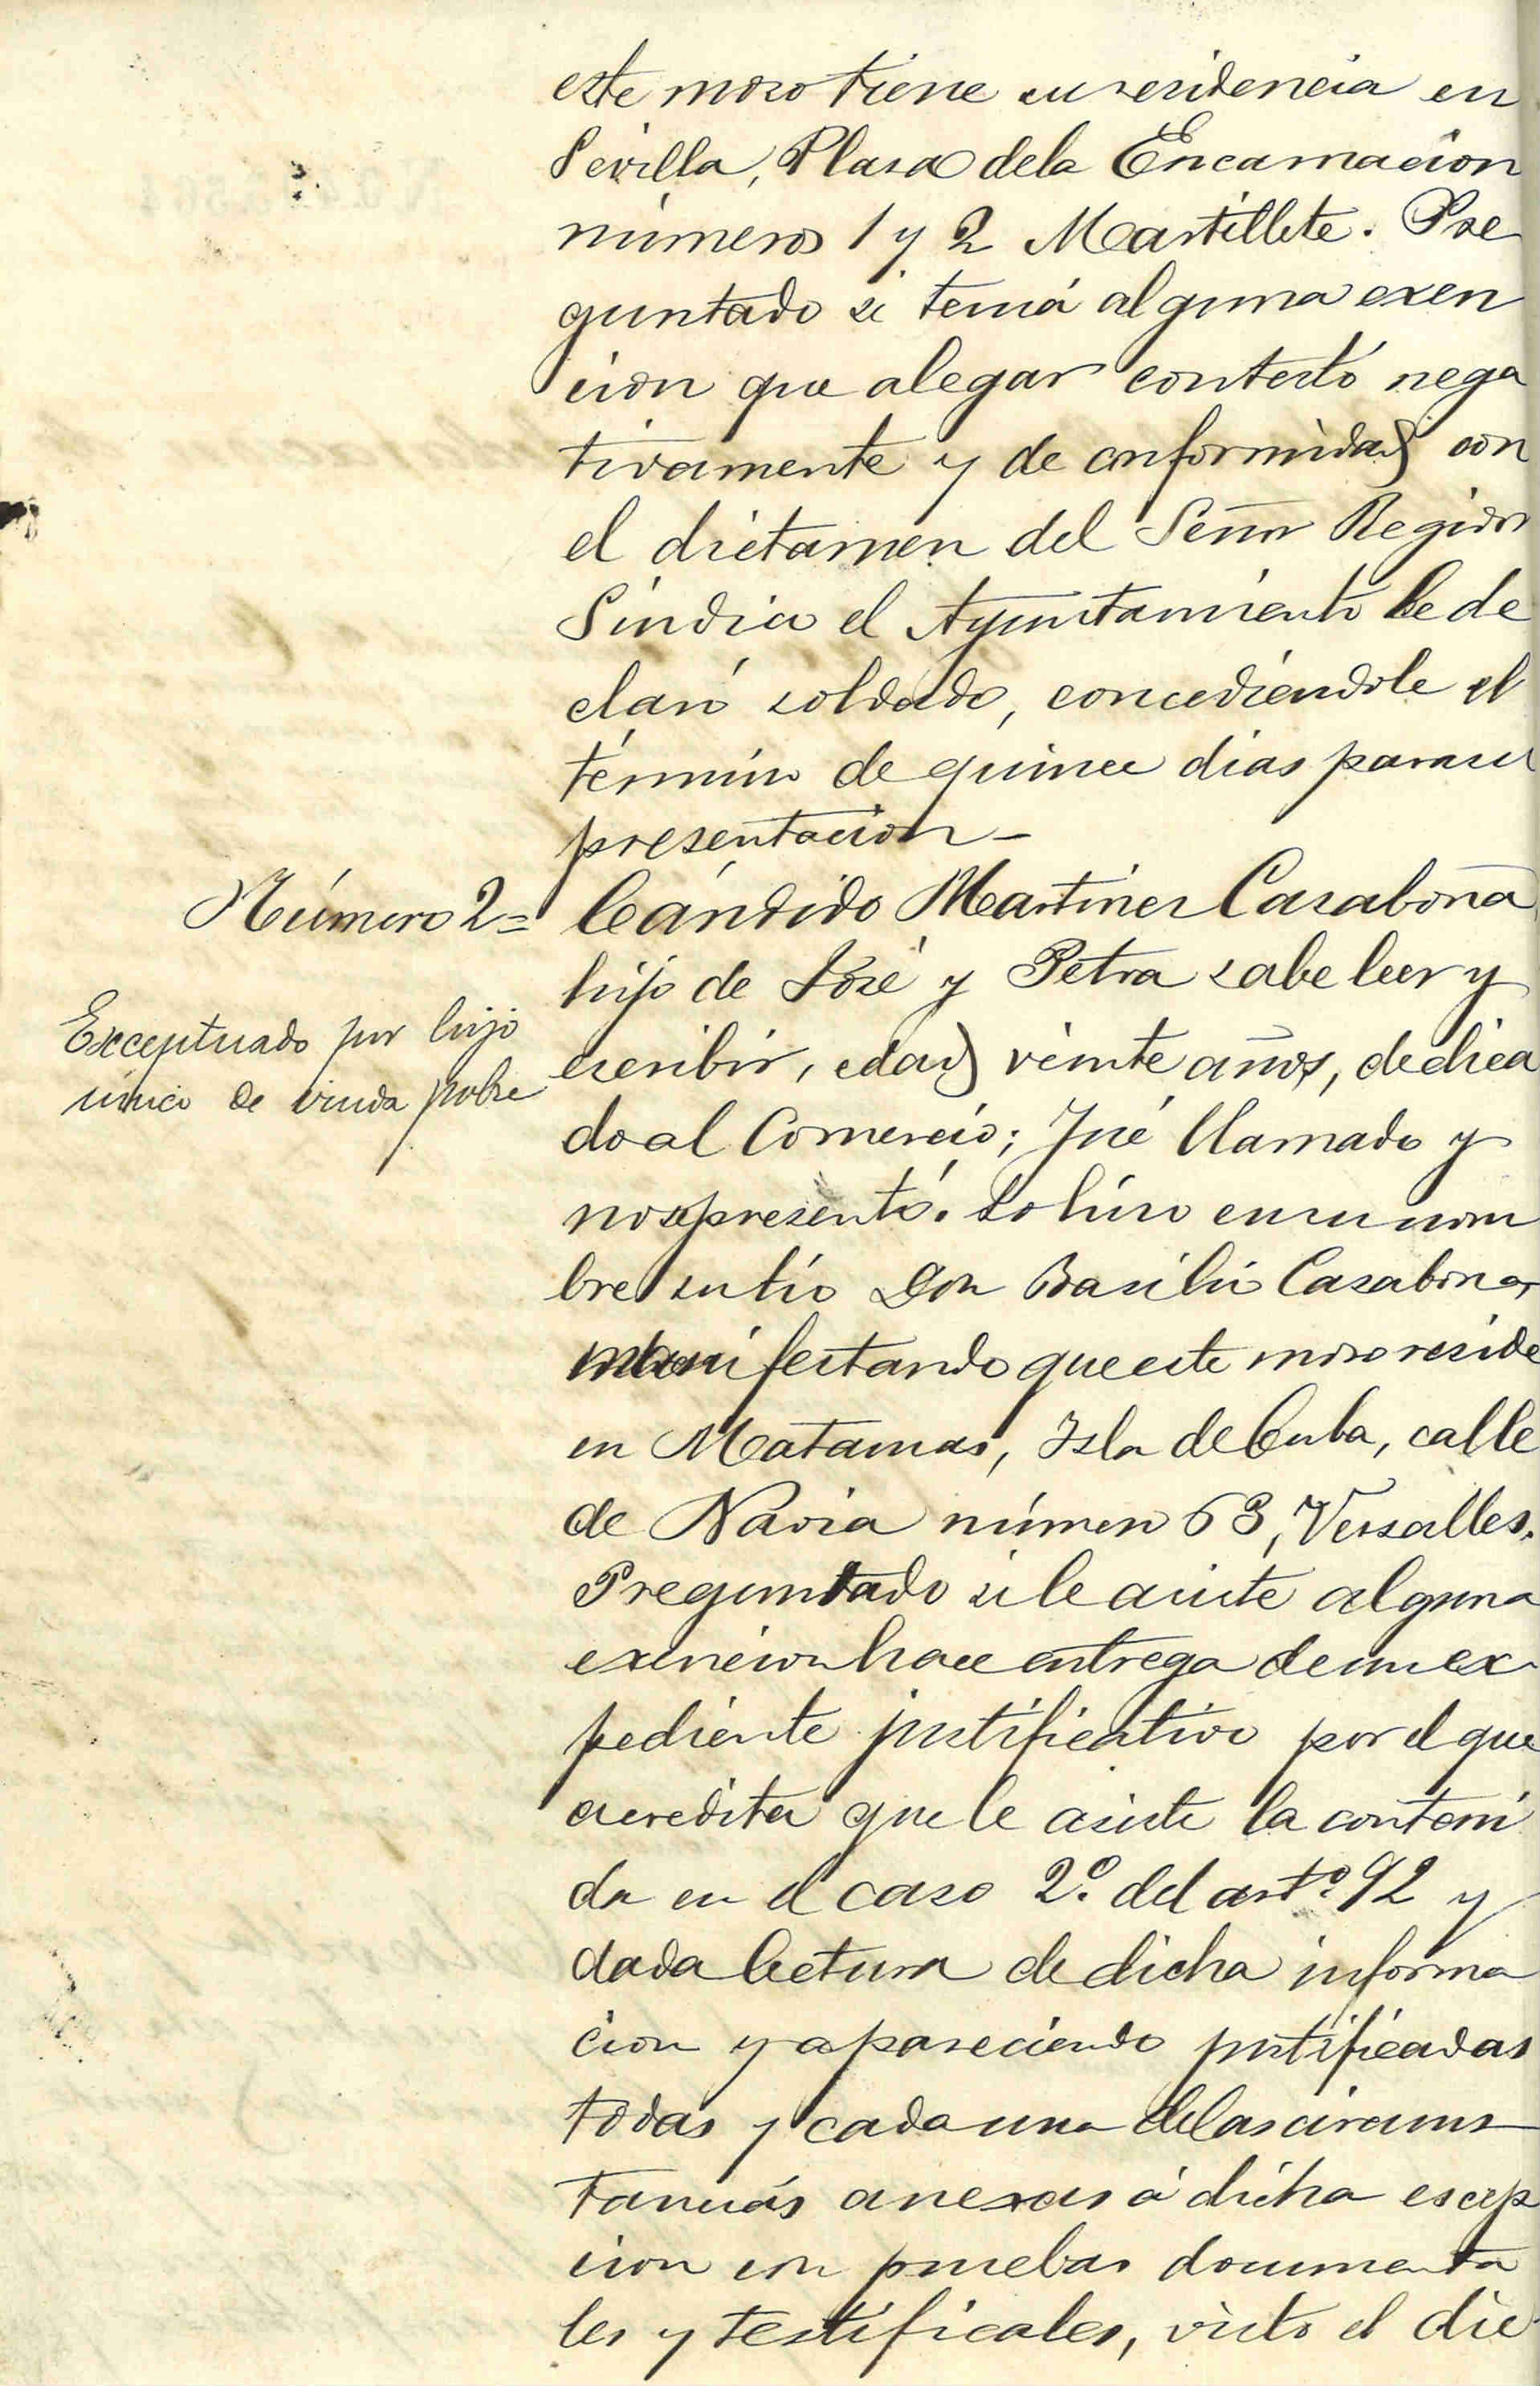 este moso tiene su residencia en
Sevilla, Plasa de la Encarnacion
números 1 y 2 Martillete. Pre
guntado si tenia alguna exen
cion que alegar contestó nega
tivamente y de conformidad con
el dictamen del Señor Regidor
Sindico el Ayuntamiento le de
claró soldado, concediéndole el
término de quince dias para su
presentacion -
Número 2 = Cándido Martines Casabona
hijo de José y Petra sabe leer y
Exceptuado por hijo
único de viuda pobre
escribir, edad veinte años, dedica
do al Comercio; Fué llamado y
no se presentó. Lo hiso en su nom
bre su tio Don Basilio Casabona,
manifestando que este moso reside
en Matansas, Isla de Cuba, calle
de Navia número 63, Versalles.
Preguntado si le asiste alguna
exencion hace entrega de un ex
pediente justificativo por el que
acredita que le asiste la conteni
da en el caso 2º. del artº. 92 y
dada lectura de dicha informa
cion y apareciendo justificadas
todas y cada una de las circuns
tancias anexas á dicha escep
cion con pruebas documenta
les y testificales, visto el dic